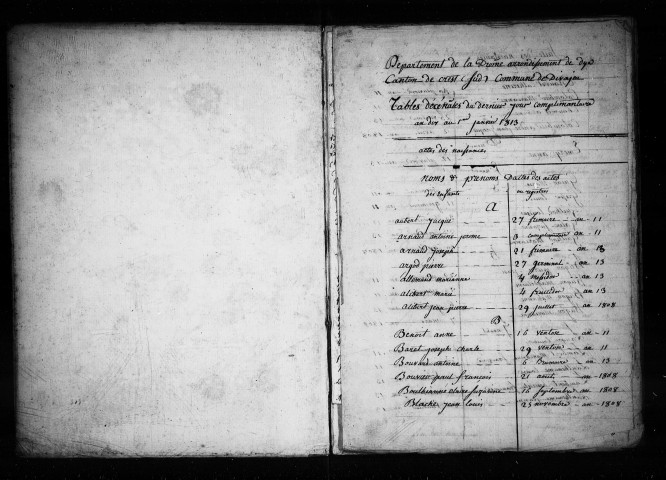 Departement de la Drome arrondissement de dye
Canton de crest (sud) Commune de Divajeu
Tables décénales du dernier jour complimentaire
an dix au 1er janvier 1813
actes des naissances
noms & prenoms Dattes des actes
des enfants ou registres
A
aubert jacque 27 frimaire an 11
arnaud antoine jaime 3 complimentaire an 11
arnaud joseph 21 frimaire an 13
argod pierre 27 germinal an 13
allemand marianne 4 messidor an 13
alibert marie 4 fructidor an 13
alibert jean pierre 29 juillet an 1808
B
Benoit anne 16 ventose an 11
Baret joseph charle 29 ventose an 11
Bouvard antoine 6 brumaire an 13
Bouvier paul françois 21 aout an 1808
Bouthianne claire suzanne 16 septembre an 1808
Blache jean louis 25 novembre an 1808